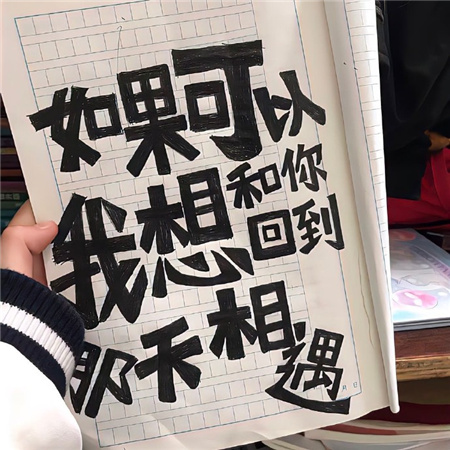 如果可以
我想和你
回到
那天相遇
月 日